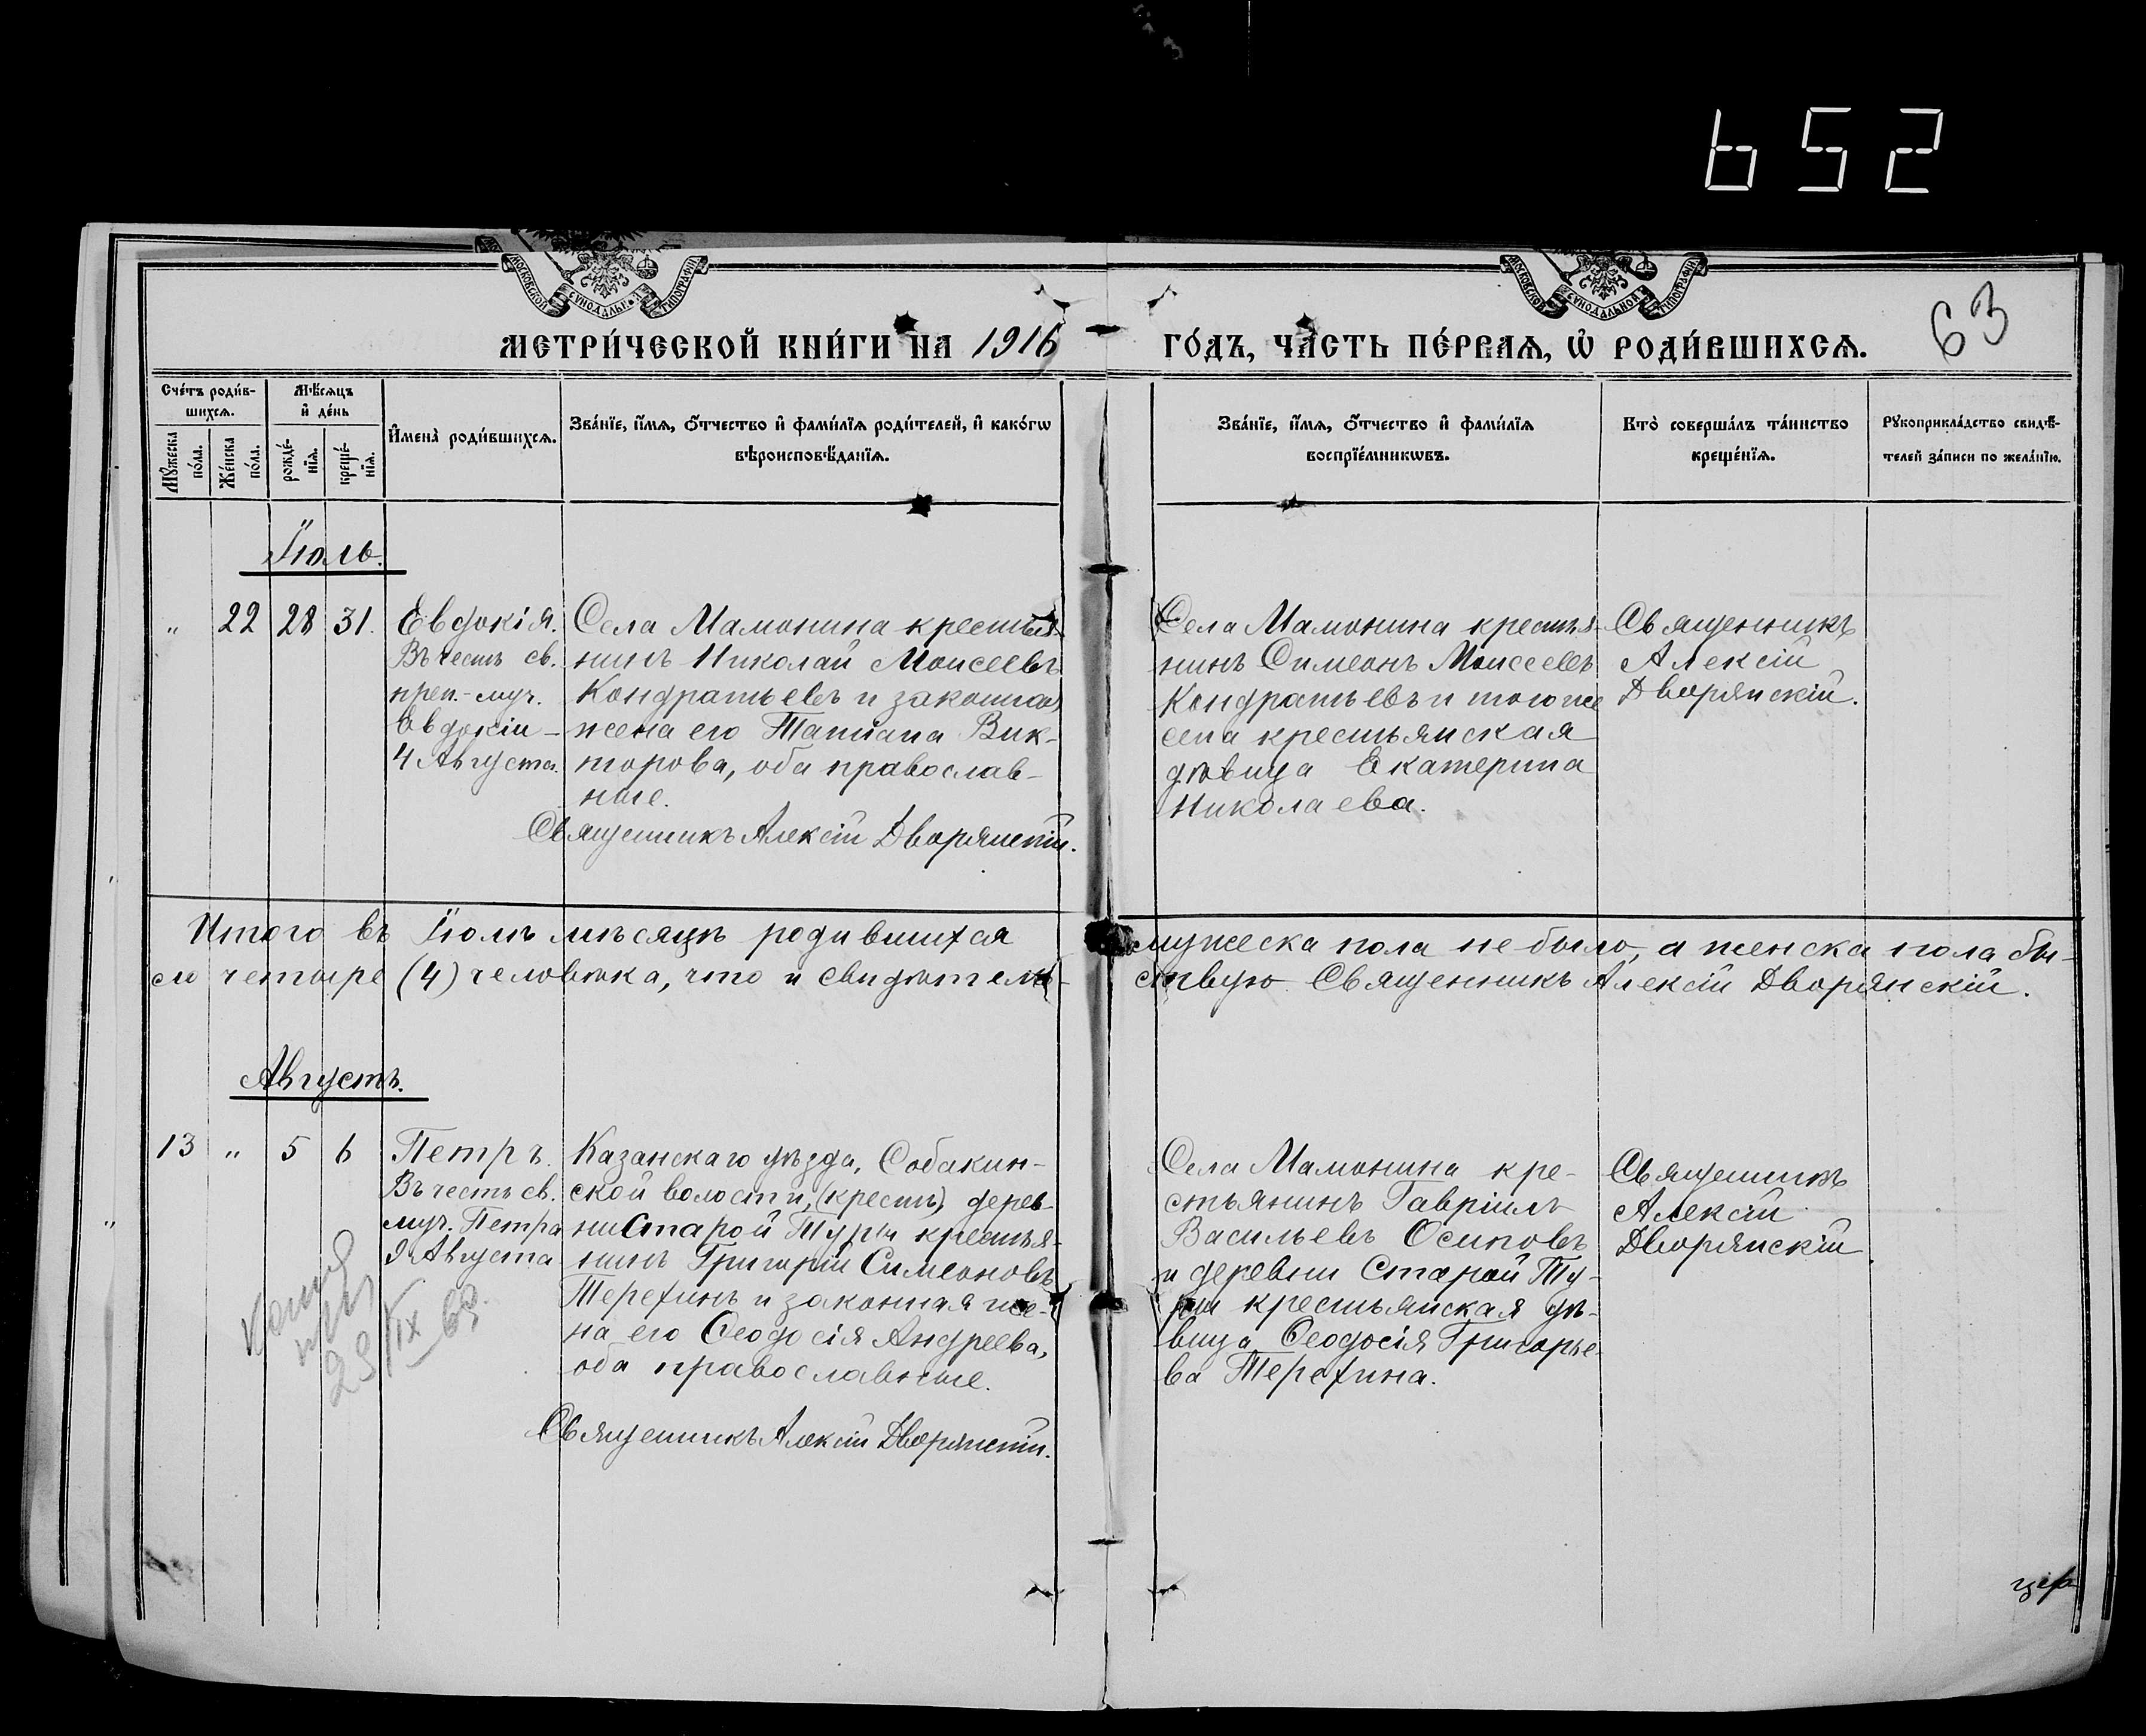 652
МОСКОВСКОЙ СѴНОДАЛЬНОЙ ТИПОГРАФІИ
МОСКОВСКОЙ СѴНОДАЛЬНОЙ ТИПОГРАФІИ
63
МЕТРИ́ЧЕСКОЙ КНИ́ГИ НА 1916 ГО́ДЪ, ЧА́СТЬ ПЕ́РВАѦ, Ѡ҆ РОДИ́ВШИХСѦ.
Сче́тъ роди́в-
шихсѧ.
Мꙋ́жеска по́ла.
Же́нска по́ла.
Мѣ́сѧцъ
и҆ де́нь
рожде́-нїѧ.
креще́-нїѧ.
И҆мена̀ роди́вшихсѧ.
Зва́нїе, и҆́мѧ, ѻ҆́тчество и҆ фами́лїѧ роди́телей, и҆ како́гѡ
вѣроисповѣ́данїѧ.
Зва́нїе, и҆́мѧ, ѻ҆́тчество и҆ фами́лїѧ
воспрїе́мникѡвъ.
Кто̀ соверша́лъ та́инство
креще́нїѧ.
Рꙋкоприкла́дство свидѣ́-
телей за́писи по жела́нїю.
Іюль.
" 22 28 31.
Евдокія.
Въ честь св.
преп.-муч.
Евдокіи –
4 Августа.
Села Мамонина крестья-
нинъ Николай Моисеевъ
Кондратьевъ и законная
жена его Татiана Вик-
торова, оба православ-
ные.
Священникъ Алексій Дворянскій.
Села Мамонина крестья-
нинъ Симеонъ Моисеевъ
Кондратьевъ и того же
села крестьянская
дѣвица Екатерина
Николаева.
Священникъ
Алексій
Дворянскій.
Итого въ Іюлѣ мѣсяцѣ родившихся мужеска пола не было, а женска пола бы-
ло четыре (4) человѣка, что и свидѣтель-ствую Священникъ Алексій Дворянскій.
Августъ.
13 " 5 6
Петръ.
Въ честь св.
муч. Петра
9 Августа
Казанскаго уѣзда, Собакин-
ской волости, (крест.) дерев-
ни Старой Туры крестья-
нинъ Григорій Симеоновъ
Терехинъ и законная же-
на его Ѳеодосія Андреева,
оба православные.
Священникъ Алексій Дворянскій.
Села Мамонина кре-
стьянинъ Гавріилъ
Васильевъ Осиповъ
и деревни Старой Ту-
ры крестьянская дѣ-
вица Ѳеодосія Григорье-
ва Терехина.
Священникъ
Алексій
Дворянскій
23/IX 69.